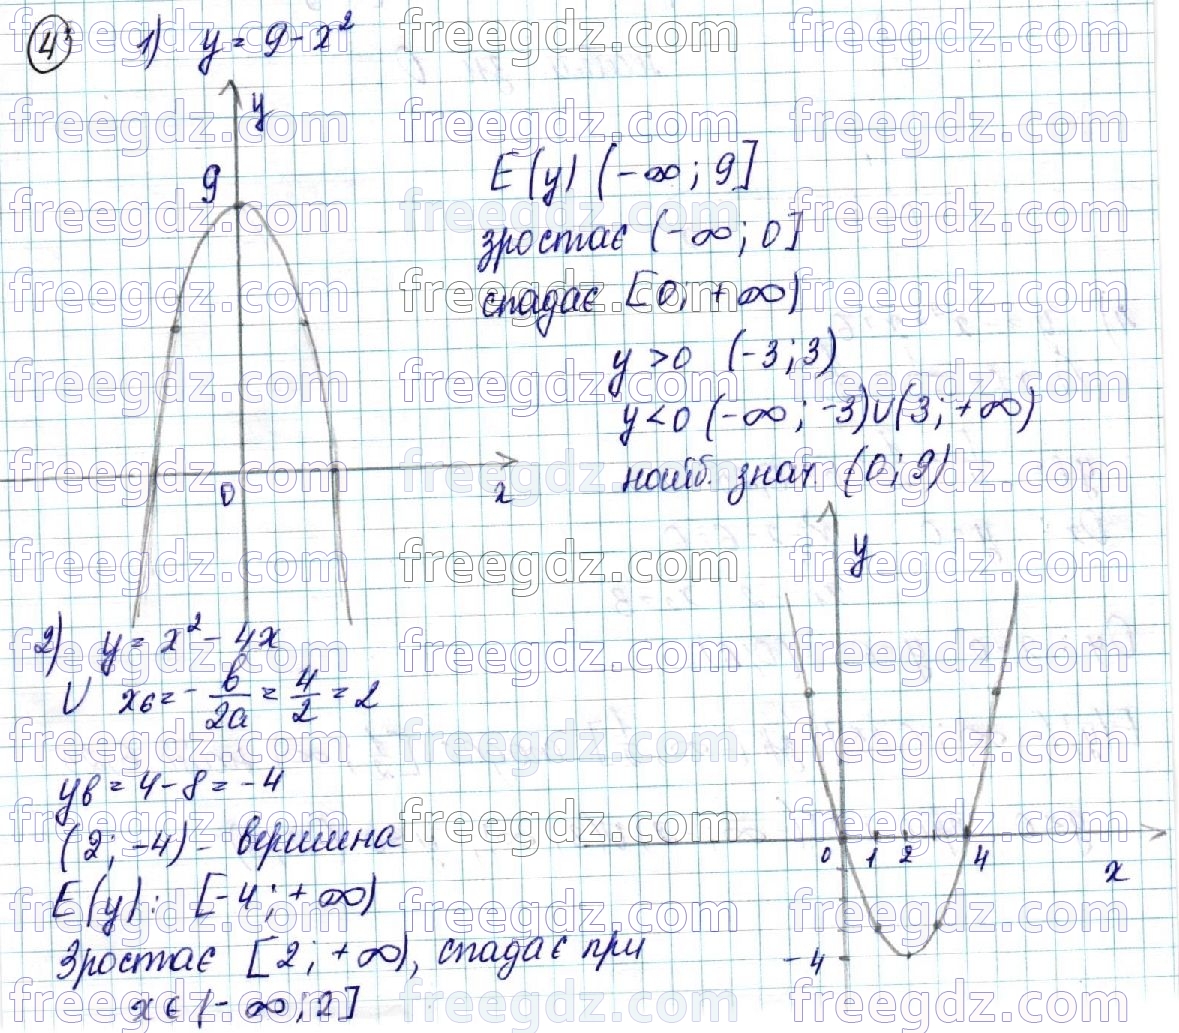 4 1) y = 9 - x²
y
9
E(y) (-∞; 9]
зростає (-∞; 0]
спадає [0; +∞)
y > 0 (-3; 3)
y < 0 (-∞; -3)∪(3; +∞)
найб. знач. (0; 9)
0
x
y
2) y = x² - 4x
∪ xв = - b/2a = 4/2 = 2
yв = 4 - 8 = -4
(2; -4) - вершина
E(y): [-4; +∞)
Зростає [2; +∞), спадає при
x ∈ (-∞; 2]
0 1 2 4
x
-4
freegdz.com